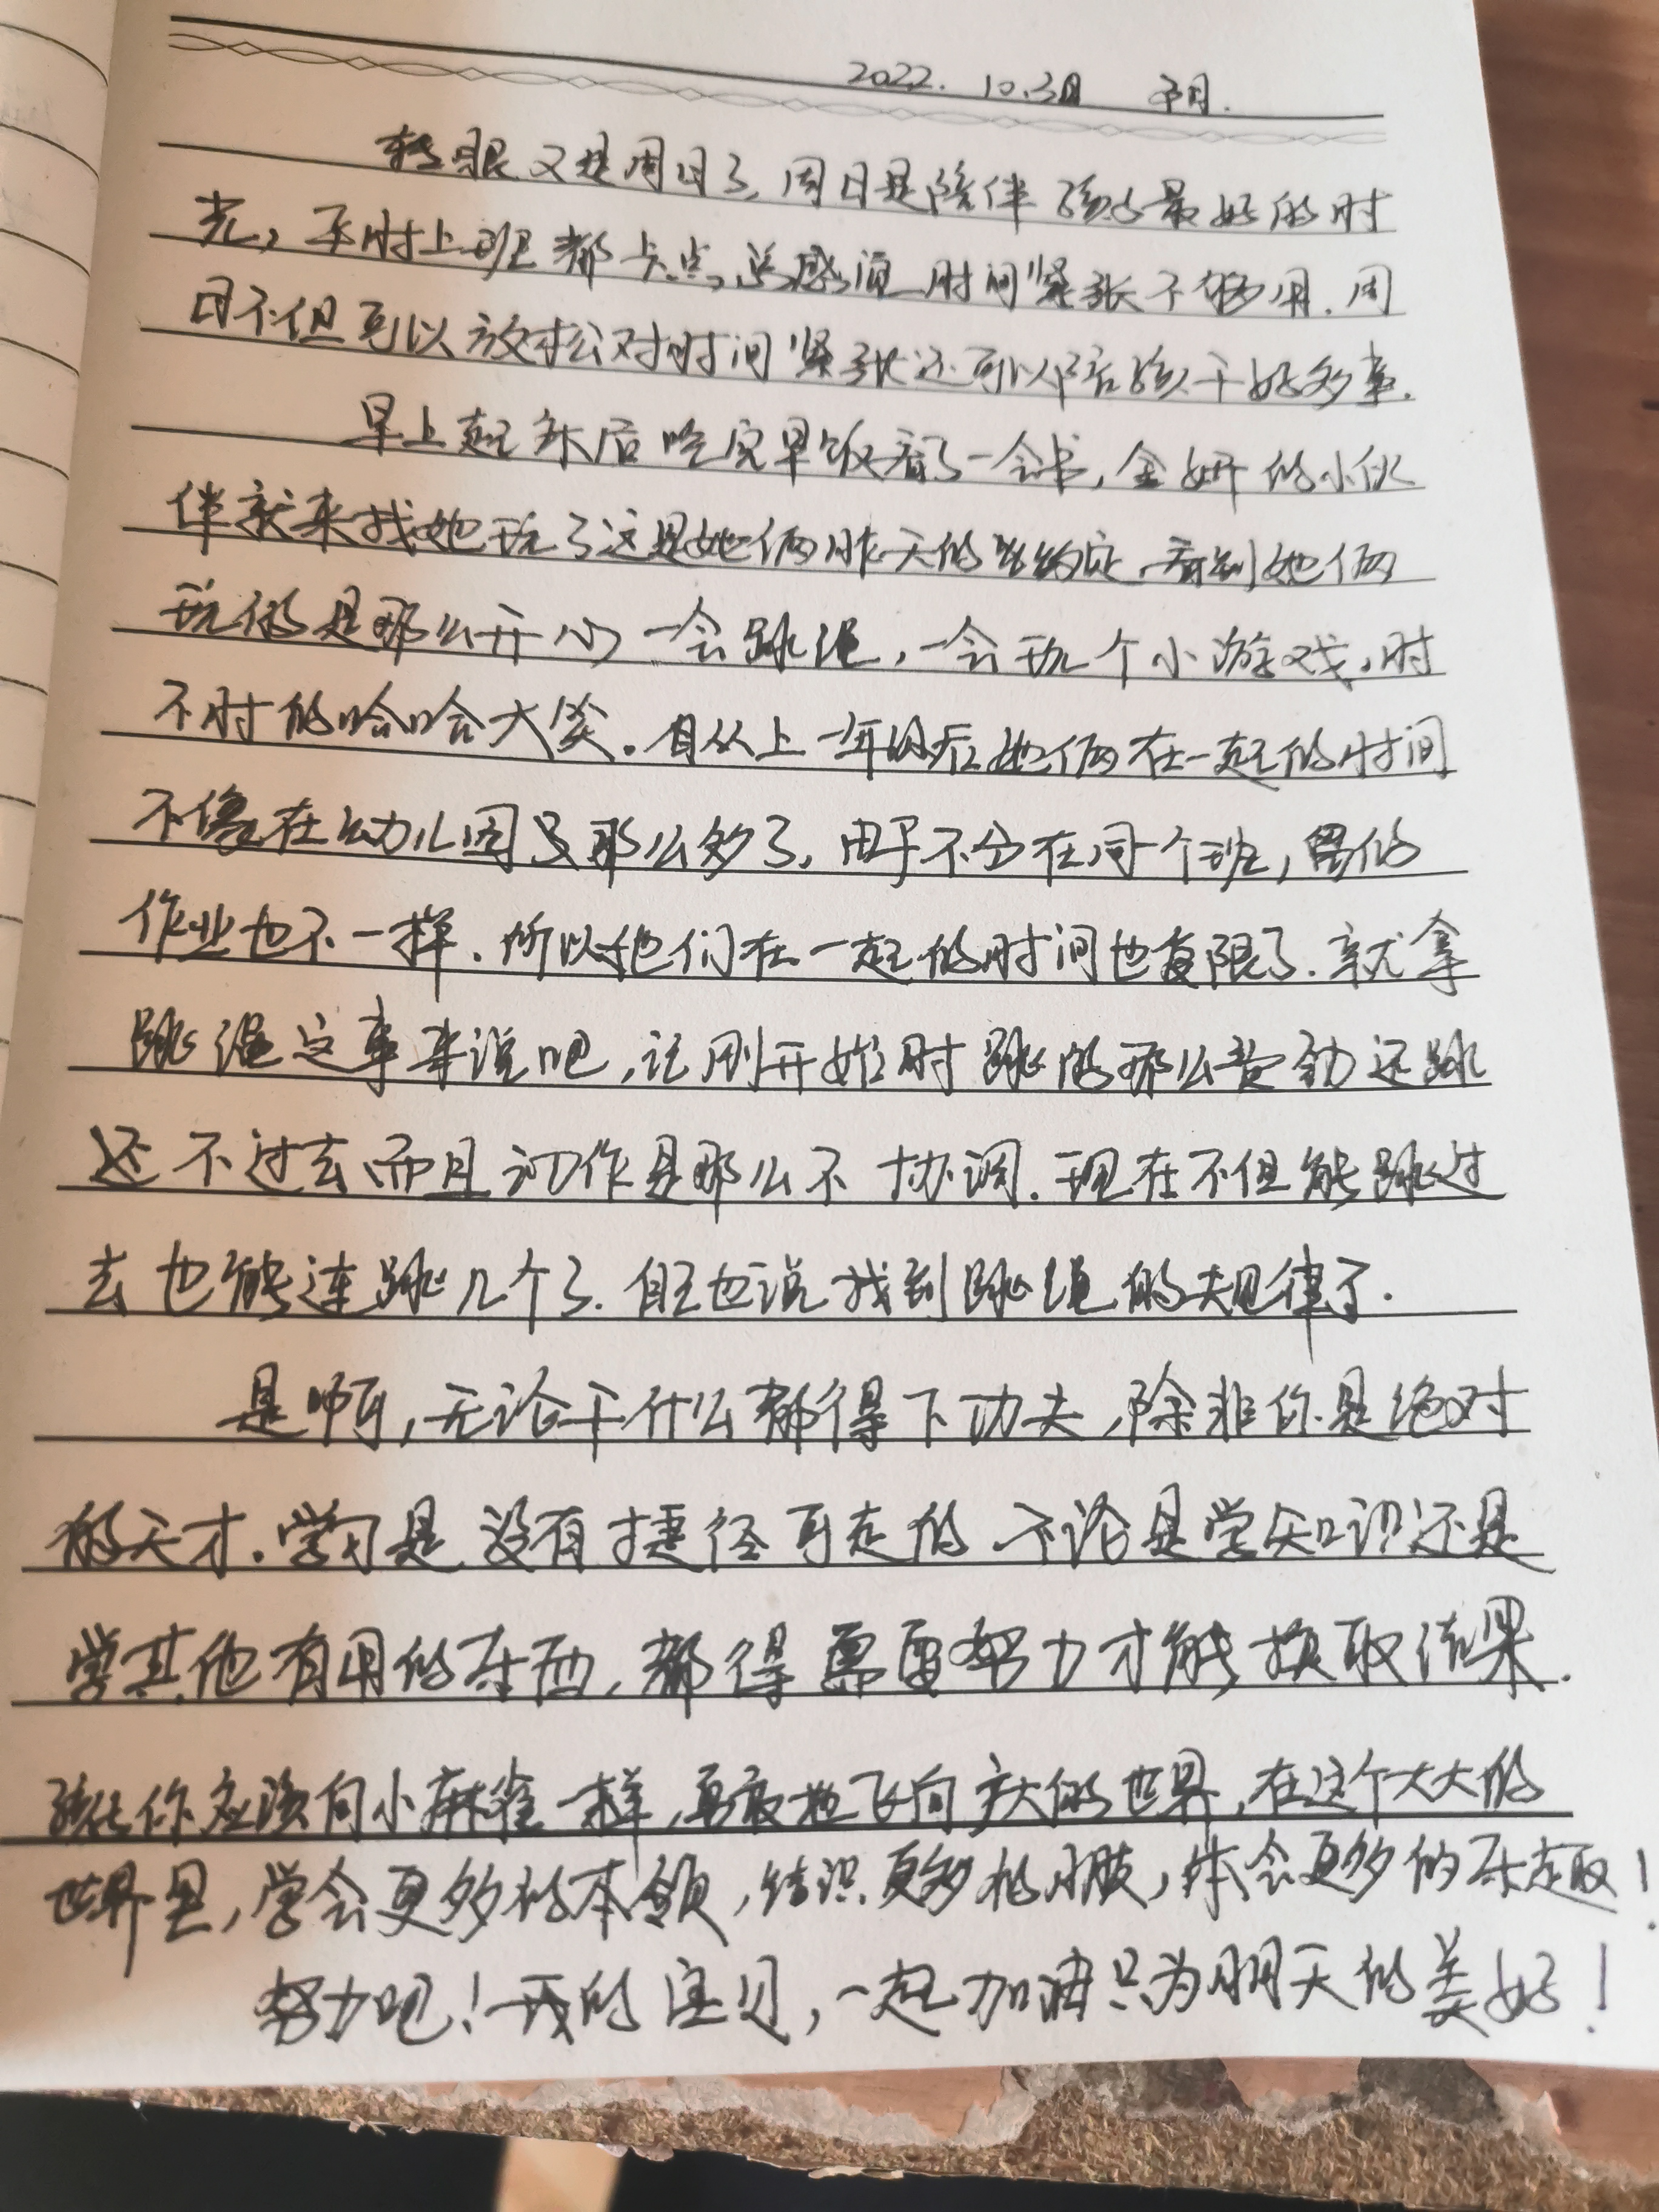 2022. 10.30 阴.
转眼又是周日了,周日是陪伴孩子最好的时
光,平时上班都卡点,总感觉时间紧张不够用.周
日不但可以放松对时间紧张还可以陪孩干好多事.
早上起床后吃完早饭看了一会书,金妍的小伙
伴就来找她玩了这是她俩昨天的约定,看到她俩
玩的是那么开心一会跳绳,一会玩个小游戏,时
不时的哈哈大笑。自从上一年级后她俩在一起的时间
不像在幼儿园是那么多了,由于不分在同个班,留的
作业也不一样.所以他们在一起的时间也有限了.就拿
跳绳这事来说吧,记刚开始时跳的那么费劲还跳
还不过去,而且动作是那么不协调.现在不但能跳过
去也能连跳几个了.自己也说找到跳绳的规律了.
是啊,无论干什么都得下功夫,除非你是绝对
的天才.学习是没有捷径可走的,不论是学知识还是
学其他有用的东西,都得需要努力才能换取结果.
孩子你应该向小麻雀一样,勇敢地飞向广大的世界,在这个大大的
世界里,学会更多的本领,结识更多的朋友,体会更多的乐趣!
努力吧!我的宝贝,一起加油只为明天的美好!